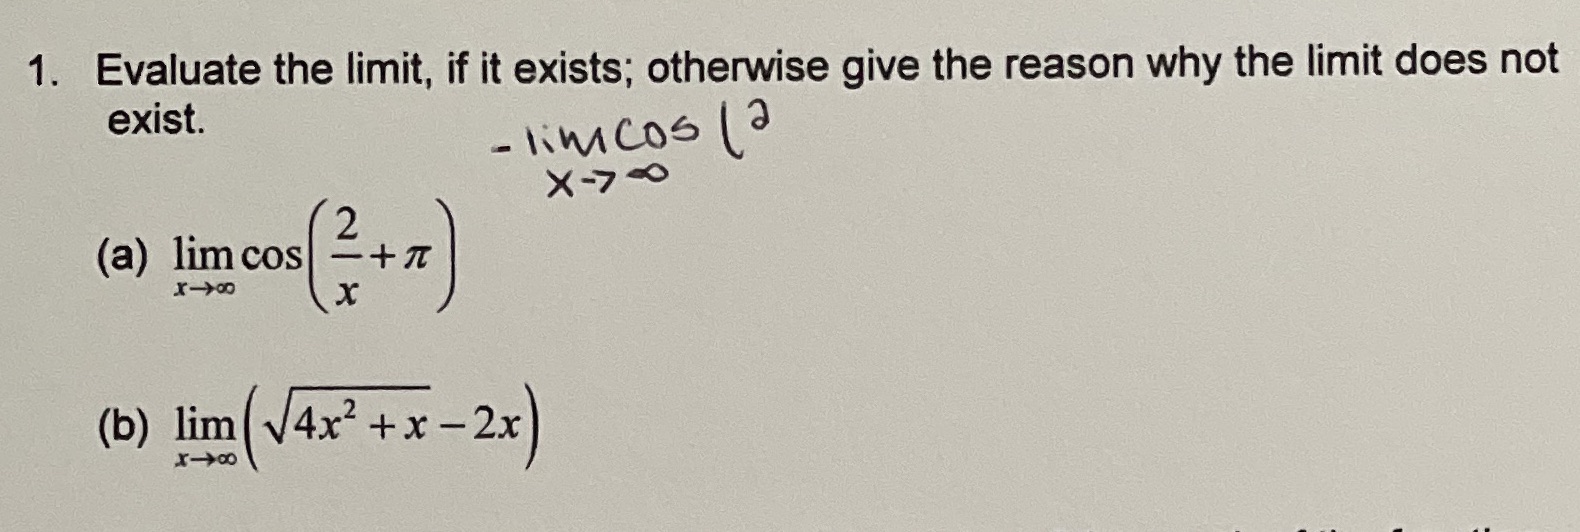 1. Evaluate the limit, if it exists; otherwise give the reason why the limit does not
exist.
- lim cos (2
x→∞
(a) lim cos(2/x + π)
x→∞
(b) lim(√(4x² + x) − 2x)
x→∞